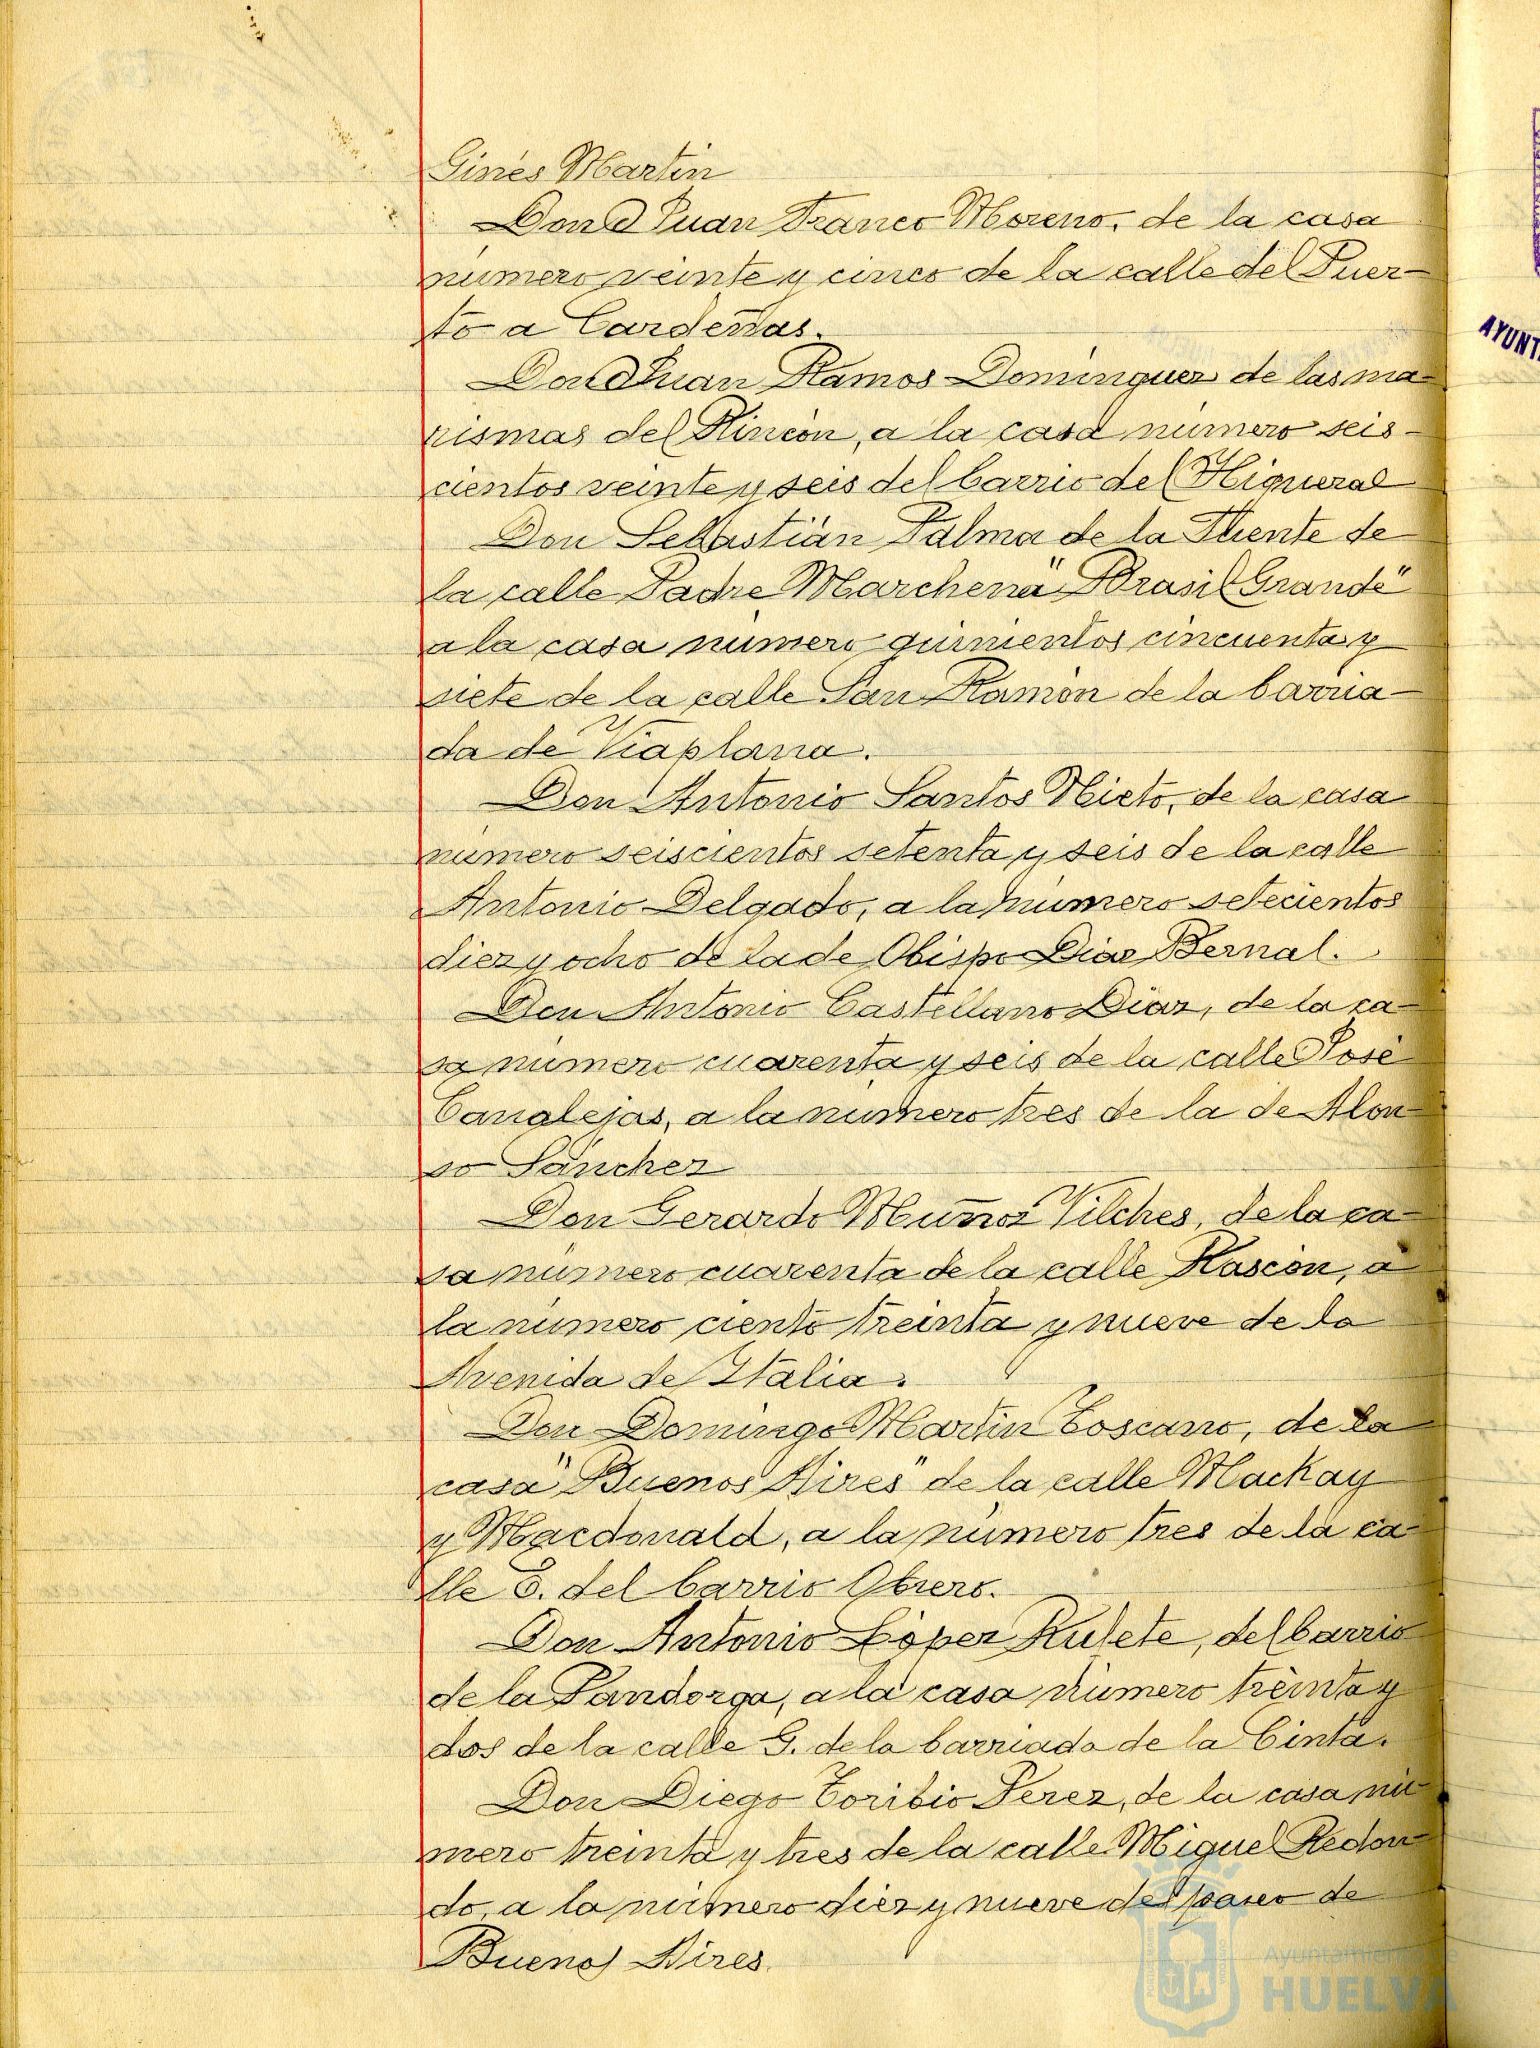 Ginés Martín
Don Juan Franco Moreno, de la casa
número veinte y cinco de la calle del Puer-
to a Cardeñas.
Don Juan Ramos Dominguez de las ma-
rismas del Rincón, a la casa número seis-
cientos veinte y seis del barrio del Higueral
Don Sebastián Palma de la Fuente de
la calle Padre Marchena "Brasil Grande"
a la casa número quinientos cincuenta y
siete de la calle San Ramón de la barria-
da de Viaplana.
Don Antonio Santos Nieto, de la casa
número seiscientos setenta y seis de la calle
Antonio Delgado, a la número setecientos
diez y ocho de la de Obispo Diaz Bernal.
Don Antonio Castellano Díaz, de la ca-
sa número cuarenta y seis de la calle José
Canalejas, a la número tres de la de Alon-
so Sánchez
Don Gerardo Muñoz Vilches, de la ca-
sa número cuarenta de la calle Rascón, a
la número ciento treinta y nueve de la
Avenida de Italia.
Don Domingo Martín Toscano, de la
casa "Buenos Aires" de la calle Mackay
y Macdonald, a la número tres de la ca-
lle E. del barrio Obrero.
Don Antonio López Rufete, del barrio
de la Pandorga, a la casa número treinta y
dos de la calle G. de la barriada de la Cinta.
Don Diego Toribio Perez, de la casa nú-
mero treinta y tres de la calle Miguel Redon-
do, a la número diez y nueve del paseo de
Buenos Aires.
AYUNT
Ayuntamiento de
HUELVA